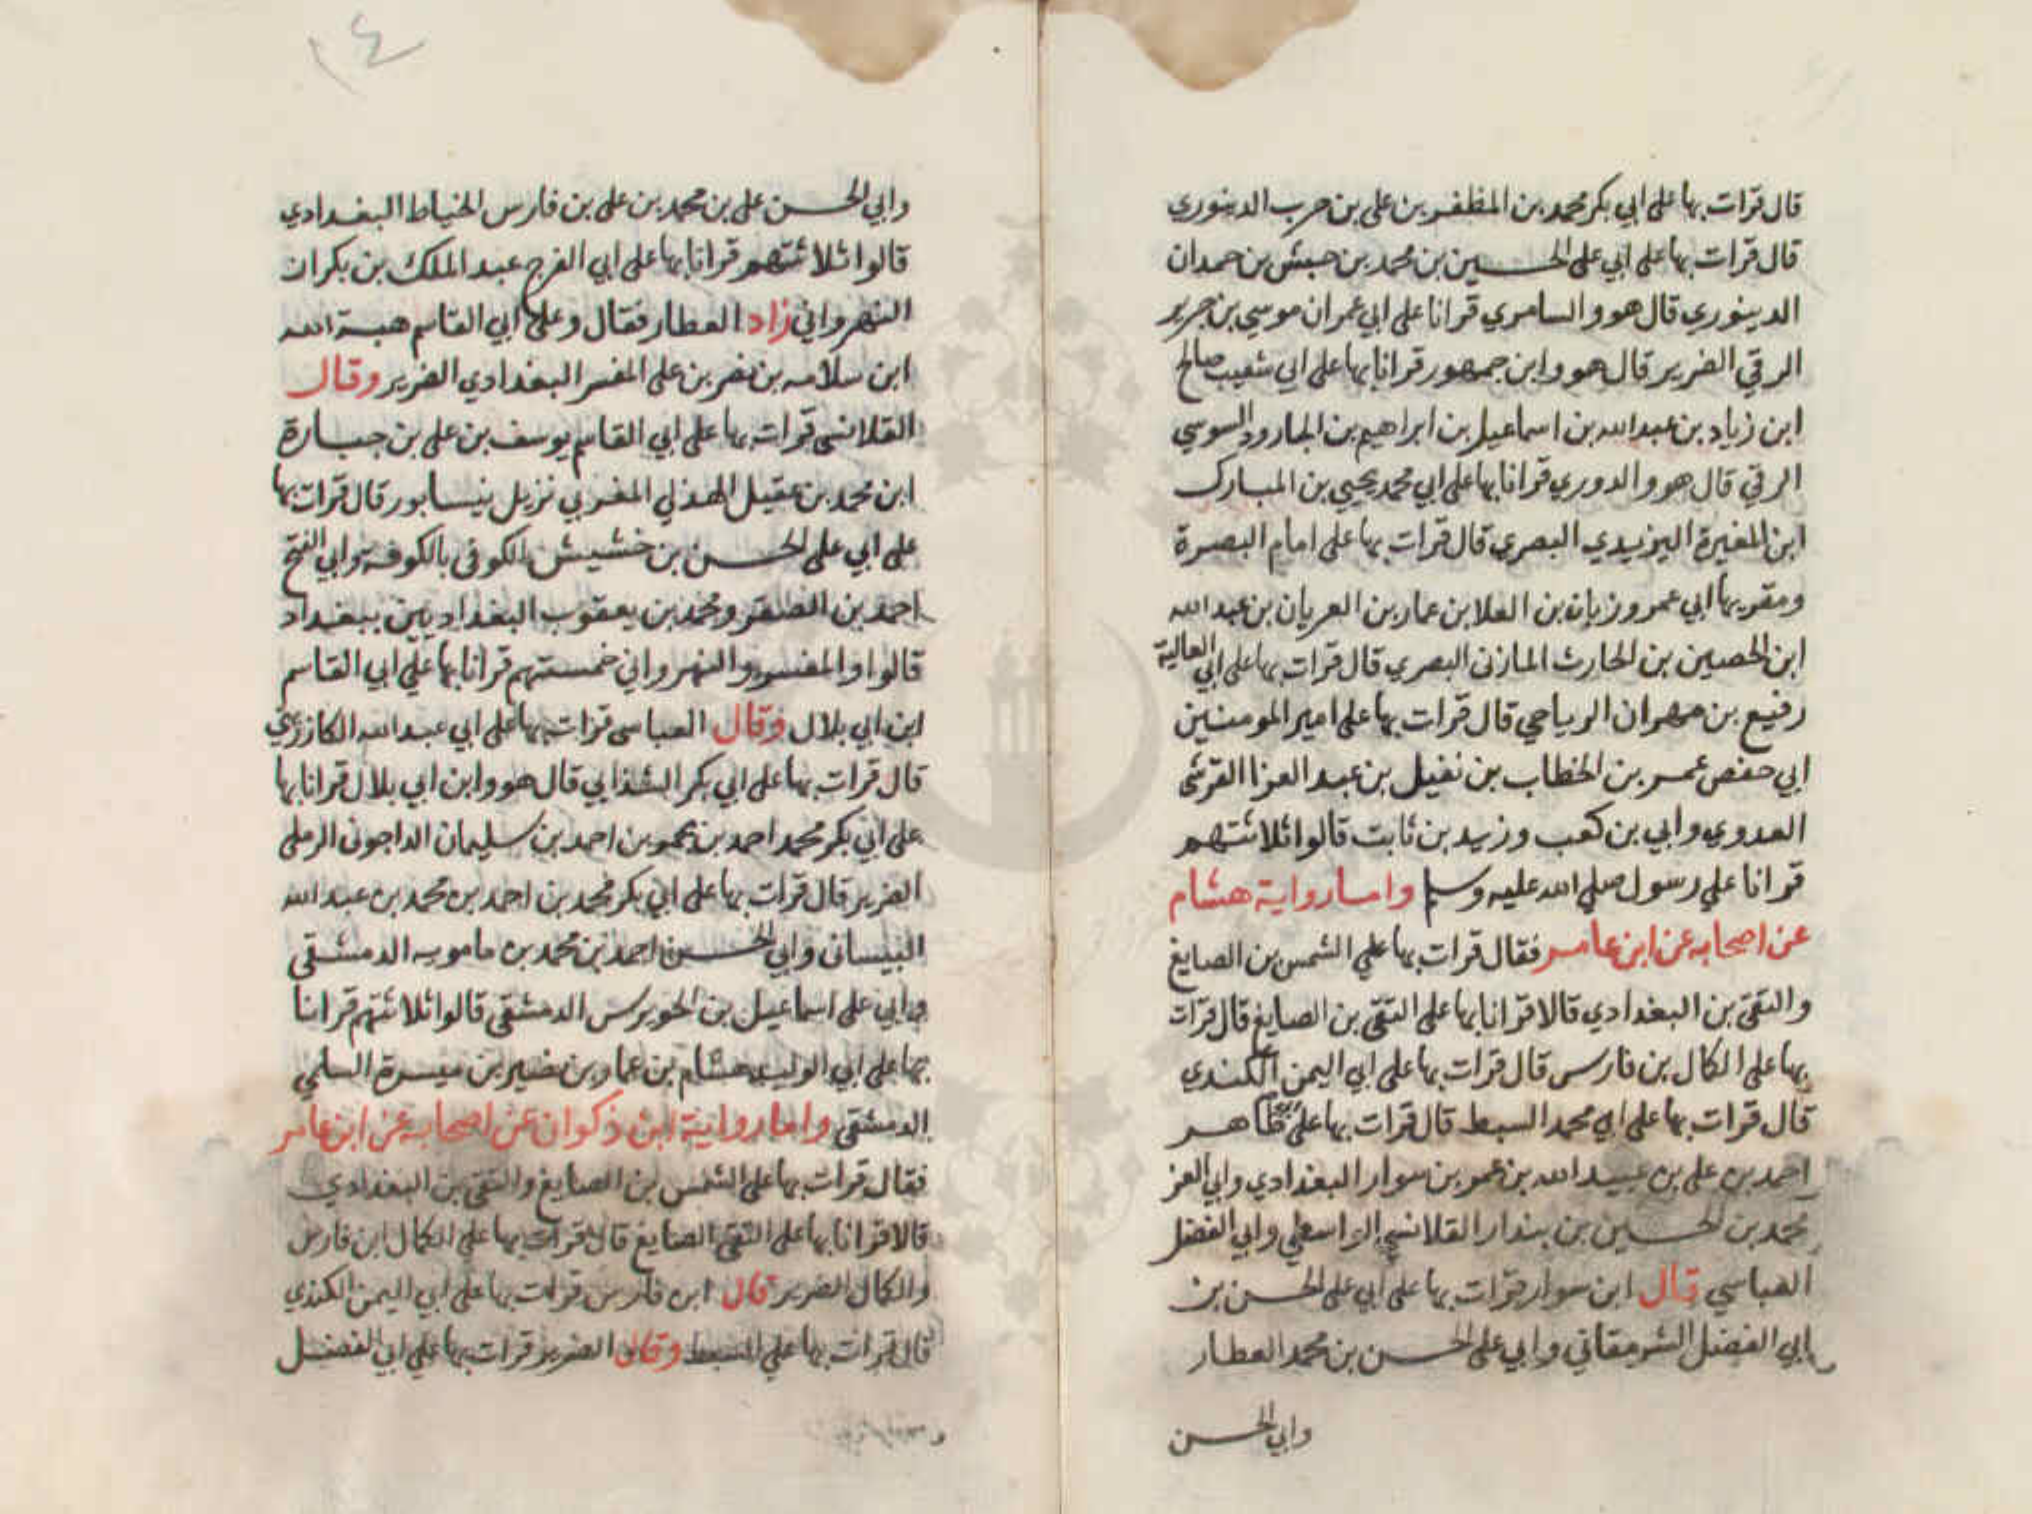 قال قرات بها على ابي بكر محمد بن المظفر بن على بن حرب الدينوري
قال قرات بها على ابي على الحسين بن محمد بن حبش بن حمدان
الدينوري قال هو والسامري قرانا على ابي عمران موسي بن جرير
الرقي الضرير قال هو وابن جمهور قرانا بها على ابي شعيب صالح
ابن زياد بن عبد الله بن اسماعيل بن ابراهيم بن الجارود السوسي
الرقي قال هو والدوري قرانا بها على ابي محمد يحيي بن المبارك
ابن المغيرة اليزيدي البصري قال قرات بها على امام البصرة
ومقريها ابي عمرو زبان بن العلا بن عمار بن العريان بن عبد الله
ابن الحصين بن الحارث المازنى البصري قال قرات بها على ابي العالية
رفيع بن مهران الرياحي قال قرات بها على امير المومنين
ابي حفص عمر بن الخطاب بن نفيل بن عبد العزا القرشى
العدوي وابي بن كعب وزيد بن ثابت قالوا ثلاثتهم
قرانا علي رسول صلي الله عليه وسلم واما رواية هشام
عن اصحابه عن ابن عامر فقال قرات بها علي الشمس بن الصايغ
والتقى بن البغدادي قالا قرانا بها على التقى بن الصايغ قال قرات
بها على الكمال بن فارس قال قرات بها على ابي اليمن الكندي
قال قرات بها على ابي محمد السبط قال قرات بها على طاهر
احمد بن على بن عبيد الله بن عمر بن سوار البغدادي وابي العز
محمد بن الحسين بن بندار القلانسي الواسطي وابي الفضل
العباسي قال ابن سوار قرات بها على ابي على الحسن بن
ابي الفضل الشرمقاني وابي على الحسن بن محمد العطار
وابي الحسن
١٤
وابي الحسن على بن محمد بن على بن فارس الخياط البغدادي
قالوا ثلاثتهم قرانا بها على ابي الفرج عبد الملك بن بكران
النهرواني زاد العطار فقال وعلى ابي القاسم هبة الله
ابن سلامه بن نصر بن على المفسر البغدادي الضرير وقال
القلانسى قرات بها على ابي القاسم يوسف بن على بن جبارة
ابن محمد بن عقيل الهذلي المغربي نزيل نيسابور قال قرات بها
على ابي على الحسن بن خشيش الكوفى بالكوفة وابي الفتح
احمد بن الصقر ومحمد بن يعقوب البغداديين ببغداد
قالوا والمفسر والنهرواني خمستهم قرانا بها علي ابي القاسم
ابن ابي بلال وقال العباسى قرات بها على ابي عبد الله الكازريني
قال قرات بها على ابي بكر الشذايي قال هو وابن ابي بلال قرانا بها
على ابي بكر محمد احمد بن عمر بن احمد بن سليمان الداجونى الرملى
الضرير قال قرات بها على ابي بكر محمد بن احمد بن محمد بن عبد الله
البيسانى وابي الحسن احمد بن محمد بن مامويه الدمشقى
وابي على اسماعيل بن الحويرس الدمشقى قالوا ثلاثتهم قرانا
بها على ابي الوليد هشام بن عمار بن نصير بن ميسرة السلمي
الدمشقى واما رواية ابن ذكوان عن اصحابه عن ابن عامر
فقال قرات بها على الشمس بن الصايغ والتقى بن البغدادي
قالا قرانا بها على التقى الصايغ قال قرات بها على الكمال ابن فارس
والكمال الضرير قال ابن فارس قرات بها على ابي اليمن الكندي
قال قرات بها علي السبط وقال الضرير قرات بها علي ابي الفضل